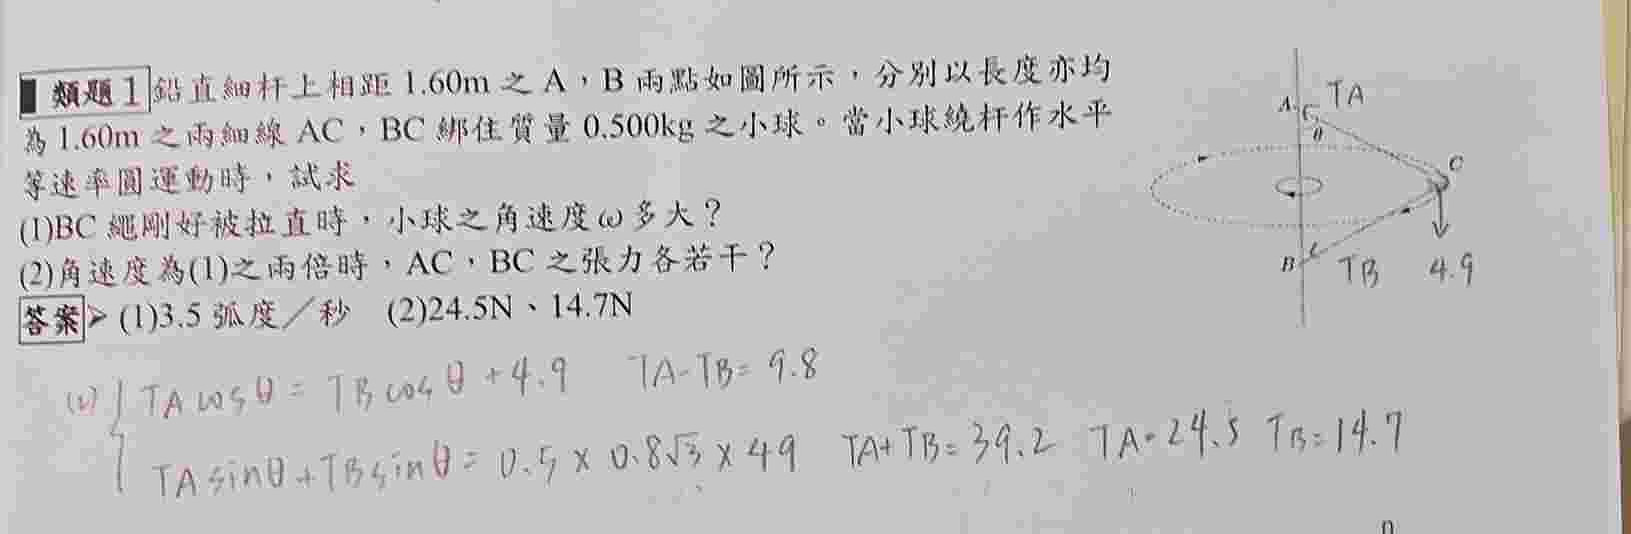 類題1 鉛直細杆上相距 1.60m 之 A，B 兩點如圖所示，分別以長度亦均
為 1.60m 之兩細線 AC，BC 綁住質量 0.500kg 之小球。當小球繞杆作水平
等速率圓運動時，試求
(1)BC 繩剛好被拉直時，小球之角速度ω多大？
(2)角速度為(1)之兩倍時，AC，BC 之張力各若干？
答案 (1)3.5 弧度／秒 (2)24.5N、14.7N
A TA
θ
C
B TB 4.9
(2) TA cosθ = TB cosθ + 4.9 TA-TB= 9.8
TA sinθ + TB sinθ = 0.5 × 0.8√3 × 49 TA+TB= 39.2 TA=24.5 TB=14.7